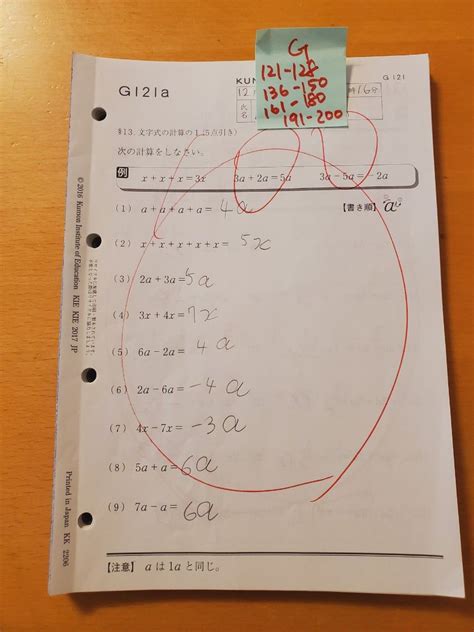 G
121-128
136-150
161-180
191-200
G121a
KUM
G 121
12
氏
名
§13. 文字式の計算の
次の計算をしなさい。
例 x + x + x = 3x 3a + 2a = 5a 3a − 5a = −2a
(1) a + a + a + a = 4a 【書き順】 a
(2) x + x + x + x + x = 5x
(3) 2a + 3a = 5a
(4) 3x + 4x = 7x
(5) 6a − 2a = 4a
(6) 2a − 6a = −4a
(7) 4x − 7x = −3a
(8) 5a + a = 6a
(9) 7a − a = 6a
【注意】 a は 1a と同じ。
© 2016 Kumon Institute of Education KIE KIE 2017 JP
Printed in Japan KK 2206